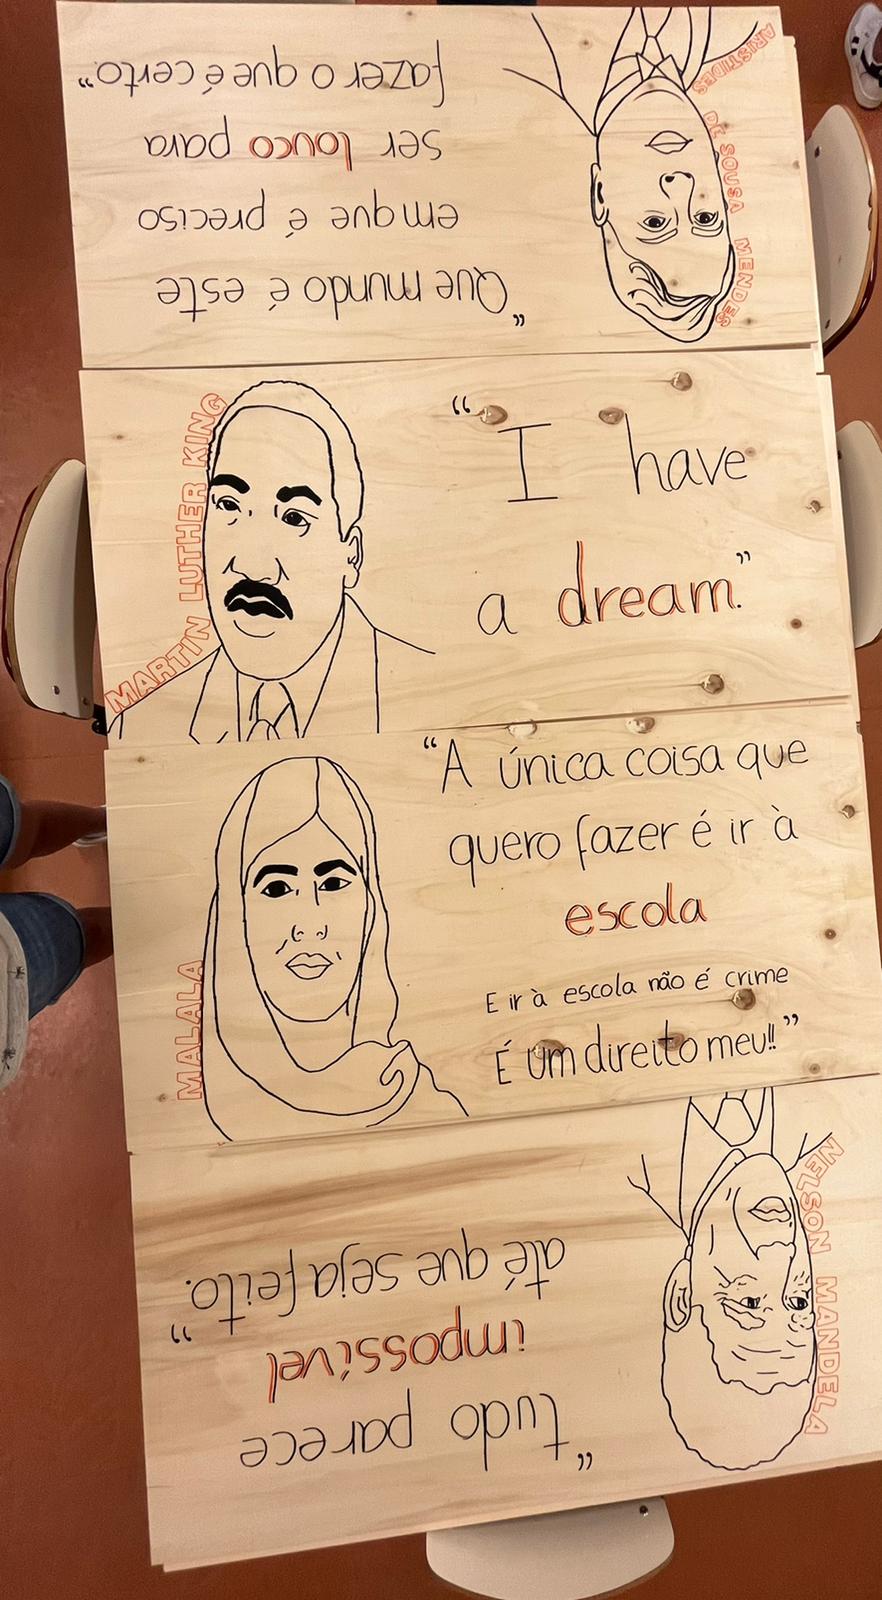 "Que mundo é este
em que é preciso
ser louco para
fazer o que é certo."
ARISTIDES DE SOUSA MENDES
MARTIN LUTHER KING
"I have
a dream."
MALALA
"A única coisa que
quero fazer é ir à
escola
E ir à escola não é crime
É um direito meu!!"
"tudo parece
impossível
até que seja feito."
NELSON MANDELA